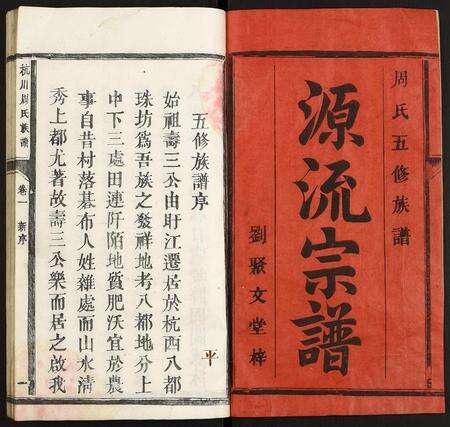 周氏五修族譜
源流宗譜
劉聚文堂梓
五修族譜序
始祖壽三公由盱江遷居於杭西八都
珠坊爲吾族之發祥地考八都地分上
中下三處田連阡陌地質肥沃宜於農
事自昔村落碁布人姓雜處而山水清
秀上都尤著故壽三公樂而居之啟我
杭川周氏族譜
卷一
新序
一